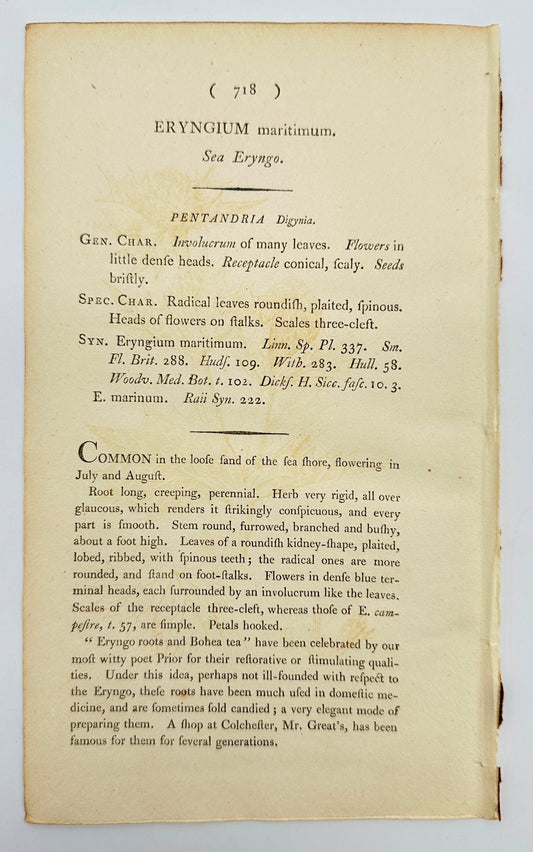 ( 718 )
ERYNGIUM maritimum.
Sea Eryngo.
PENTANDRIA Digynia.
GEN. CHAR. Involucrum of many leaves. Flowers in
little denſe heads. Receptacle conical, ſcaly. Seeds
briſtly.
SPEC. CHAR. Radical leaves roundiſh, plaited, ſpinous.
Heads of flowers on ſtalks. Scales three-cleft.
SYN. Eryngium maritimum. Linn. Sp. Pl. 337. Sm.
Fl. Brit. 288. Hudſ. 109. With. 283. Hull. 58.
Woodv. Med. Bot. t. 102. Dickſ. H. Sicc. faſc. 10. 3.
E. marinum. Raii Syn. 222.
COMMON in the looſe ſand of the ſea ſhore, flowering in
July and Auguſt.
Root long, creeping, perennial. Herb very rigid, all over
glaucous, which renders it ſtrikingly conſpicuous, and every
part is ſmooth. Stem round, furrowed, branched and buſhy,
about a foot high. Leaves of a roundiſh kidney-ſhape, plaited,
lobed, ribbed, with ſpinous teeth; the radical ones are more
rounded, and ſtand on foot-ſtalks. Flowers in denſe blue ter-
minal heads, each ſurrounded by an involucrum like the leaves.
Scales of the receptacle three-cleft, whereas thoſe of E. cam-
peſtre, t. 57, are ſimple. Petals hooked.
" Eryngo roots and Bohea tea " have been celebrated by our
moſt witty poet Prior for their reſtorative or ſtimulating quali-
ties. Under this idea, perhaps not ill-founded with reſpect to
the Eryngo, theſe roots have been much uſed in domeſtic me-
dicine, and are ſometimes ſold candied; a very elegant mode of
preparing them. A ſhop at Colcheſter, Mr. Great's, has been
famous for them for ſeveral generations.